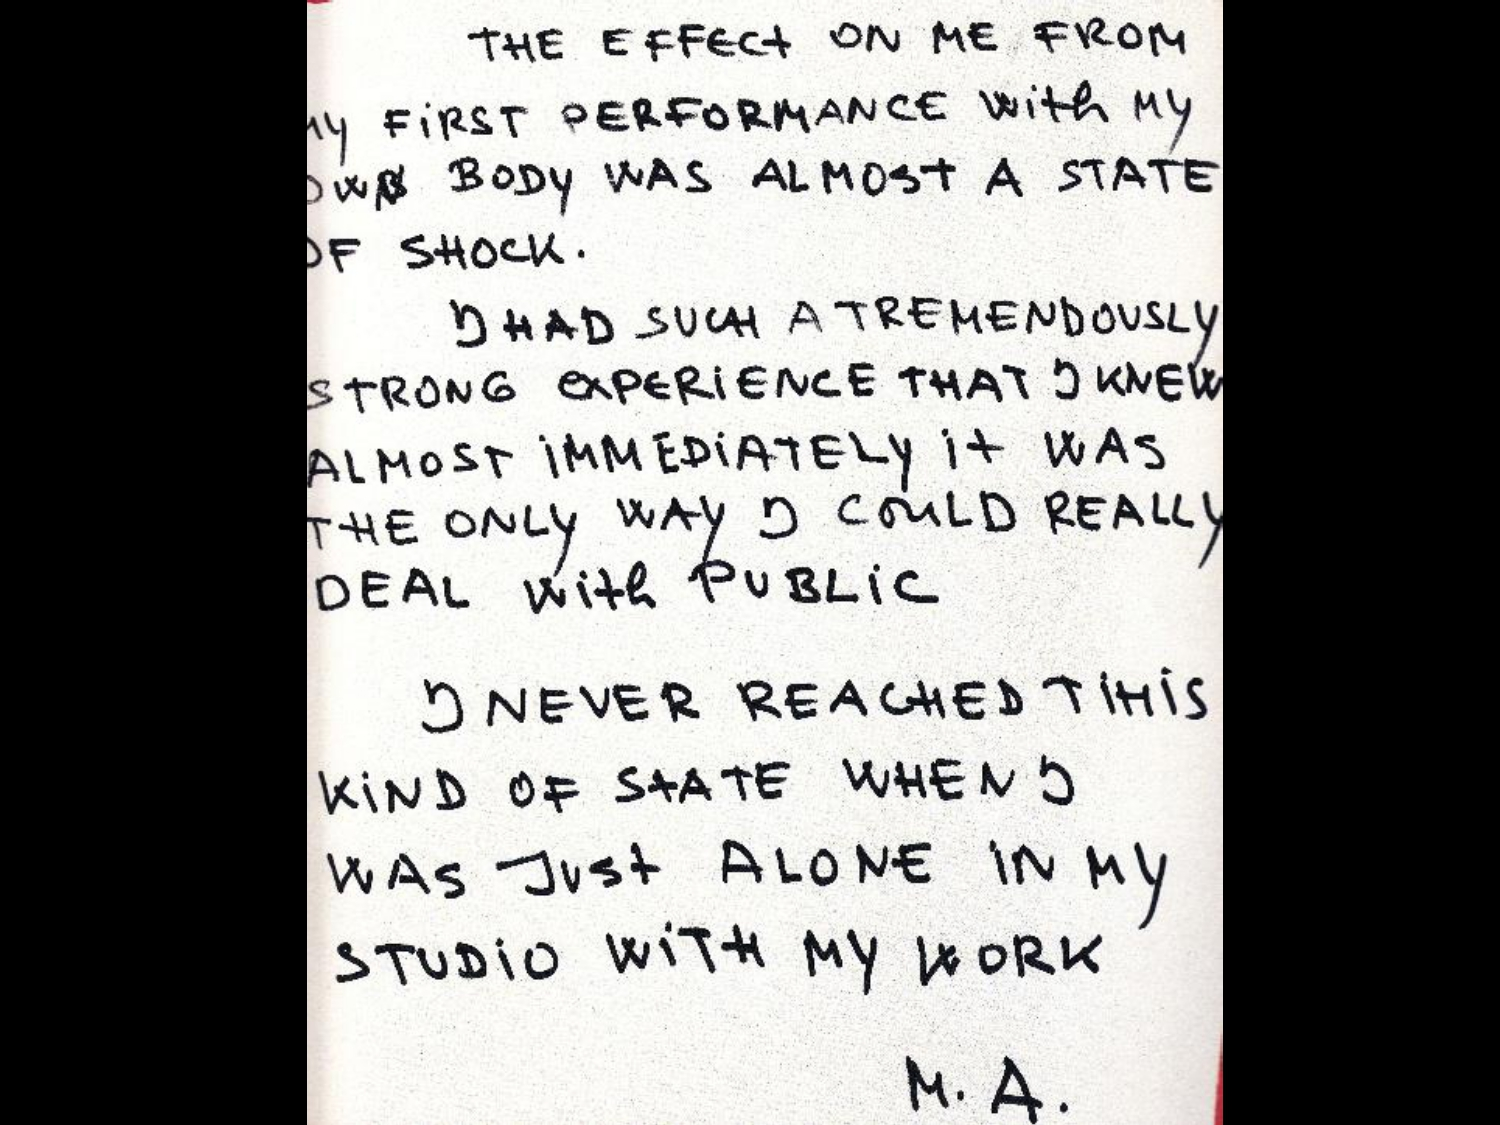 THE EFFECT ON ME FROM
MY FIRST PERFORMANCE With MY
OWN BODY WAS ALMOST A STATE
OF SHOCK.
I HAD SUCH A TREMENDOUSLY
STRONG EXPERIENCE THAT I KNEW
ALMOST iMMEDiATELY it WAS
THE ONLY WAY I COULD REALLY
DEAL With PUBLiC
I NEVER REACHED THiS
KiND OF STATE WHEN I
WAS JUST ALONE iN MY
STUDiO WiTH MY WORK
M. A.